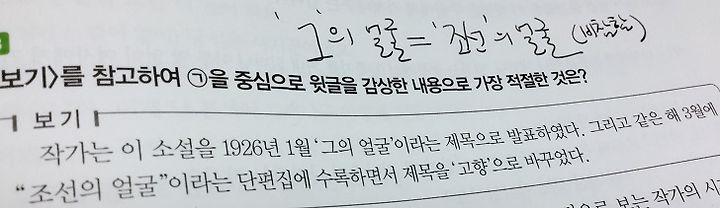 '그'의 얼굴='조선'의 얼굴 (비참함)
보기>를 참고하여 ㉠을 중심으로 윗글을 감상한 내용으로 가장 적절한 것은?
보기
작가는 이 소설을 1926년 1월 '그의 얼굴'이라는 제목으로 발표하였다. 그리고 같은 해 3월에
"조선의 얼굴"이라는 단편집에 수록하면서 제목을 '고향'으로 바꾸었다.
으로 보는 작가의 시